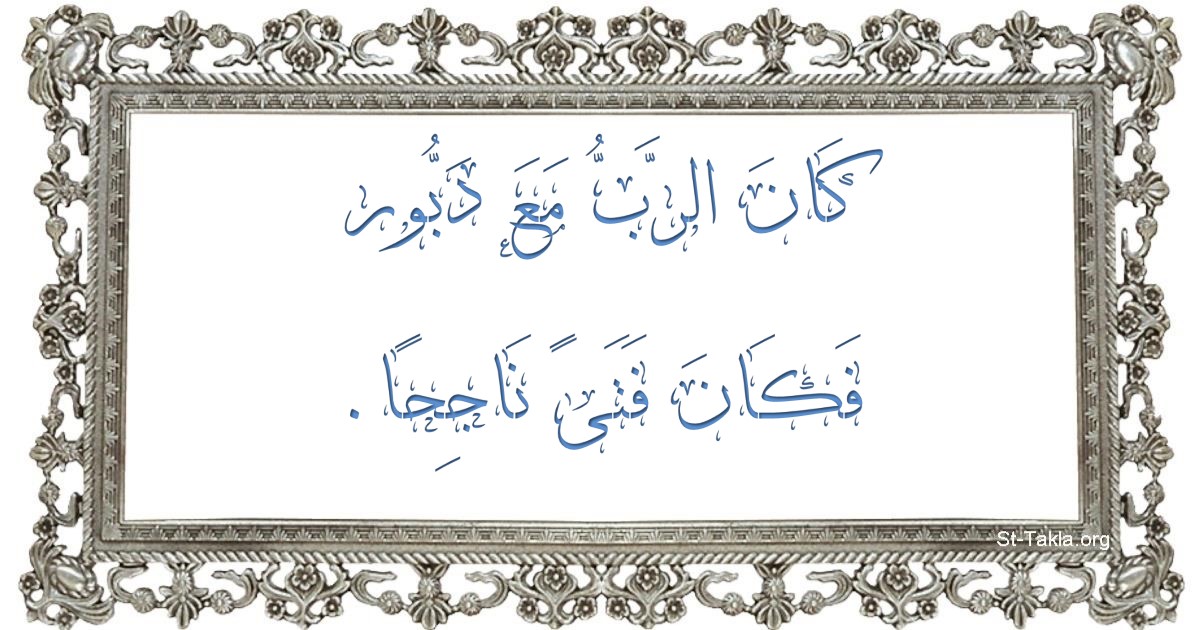 كَانَ الرَّبُّ مَعَ دَبُّور
فَكَانَ فَتَىً نَاجِحًا.
St-Takla.org